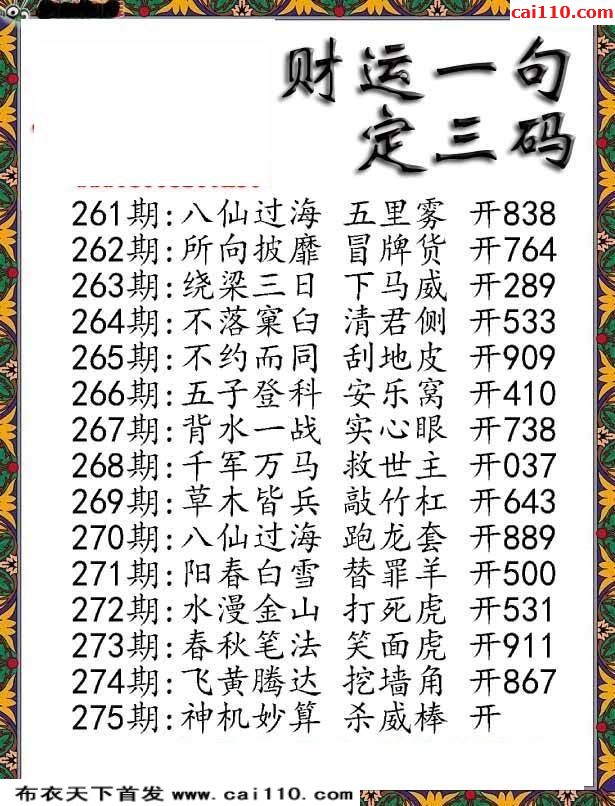 cai110.com
财运一句
定三码
261期:八仙过海 五里雾 开838
262期:所向披靡 冒牌货 开764
263期:绕梁三日 下马威 开289
264期:不落窠臼 清君侧 开533
265期:不约而同 刮地皮 开909
266期:五子登科 安乐窝 开410
267期:背水一战 实心眼 开738
268期:千军万马 救世主 开037
269期:草木皆兵 敲竹杠 开643
270期:八仙过海 跑龙套 开889
271期:阳春白雪 替罪羊 开500
272期:水漫金山 打死虎 开531
273期:春秋笔法 笑面虎 开911
274期:飞黄腾达 挖墙角 开867
275期:神机妙算 杀威棒 开
布衣天下首发 www.cai110.com